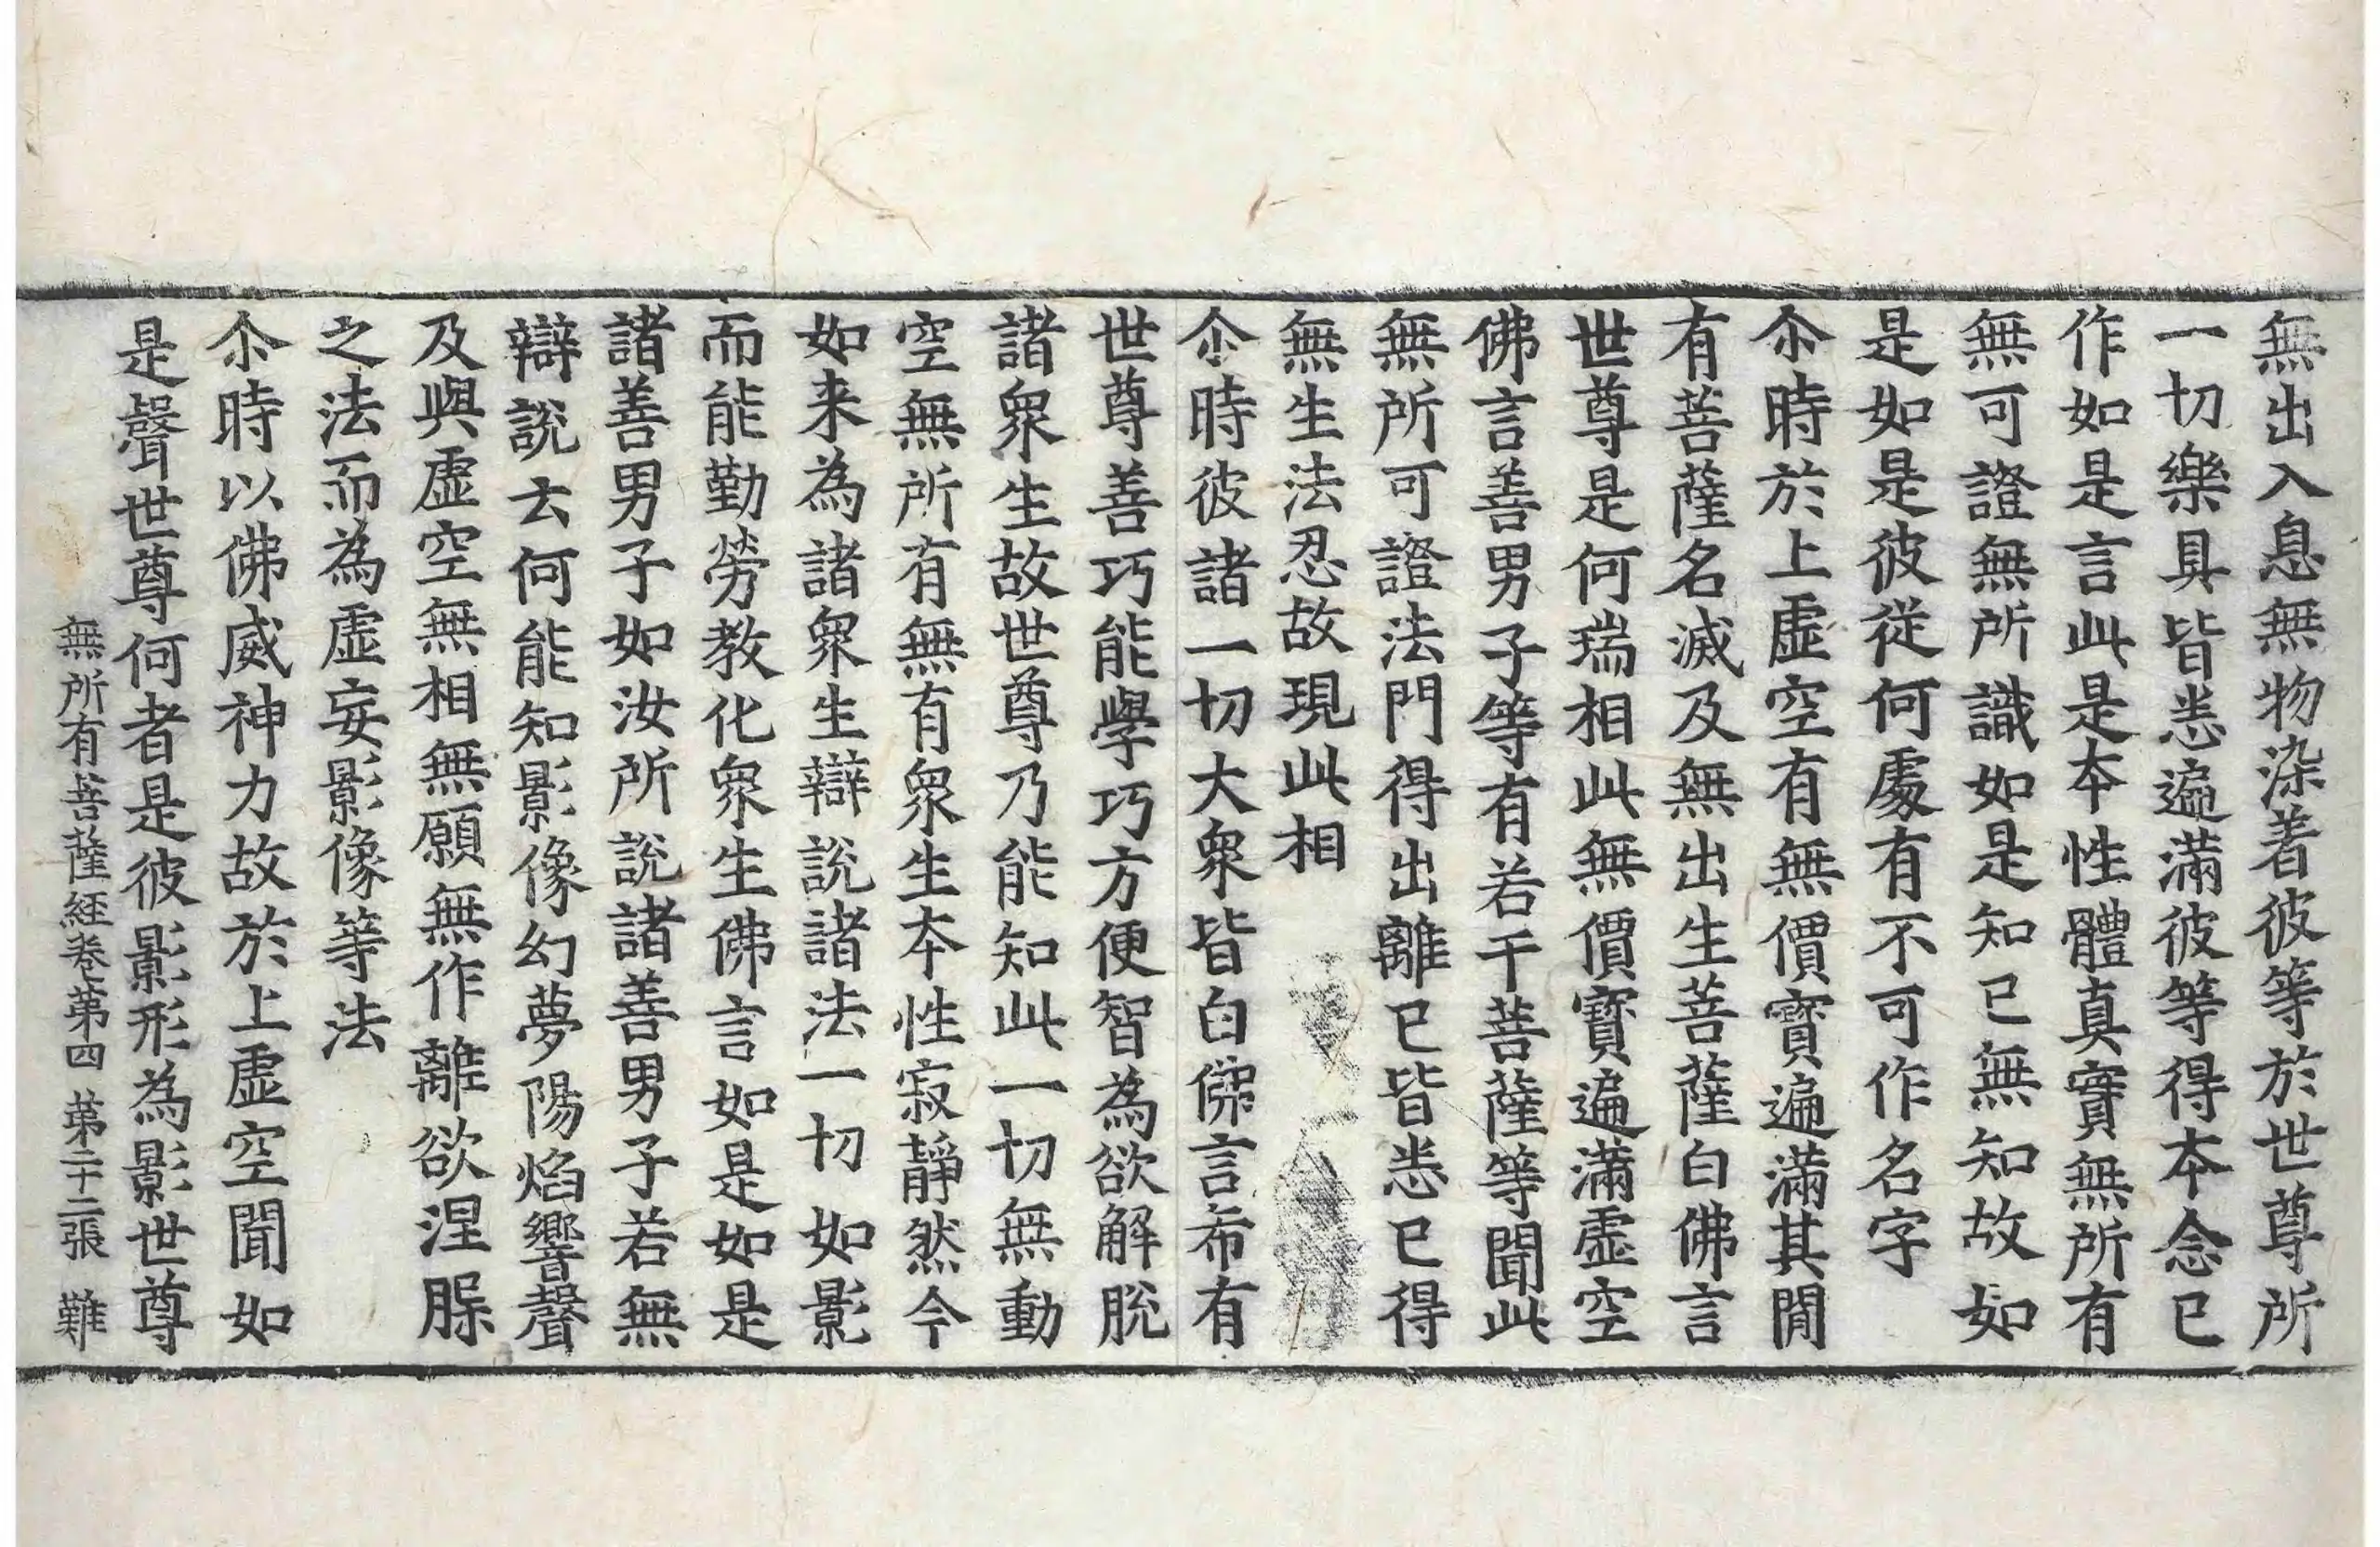 無出入息無物染著彼等於世尊所
一切樂具皆悉遍滿彼等得本念已
作如是言此是本性體真實無所有
無可證無所識如是知已無知故如
是如是彼從何處有不可作名字
尒時於上虛空有無價寶遍滿其閒
有菩薩名滅及無出生菩薩白佛言
世尊是何瑞相此無價寶遍滿虛空
佛言善男子等有若干菩薩等聞此
無所可證法門得出離已皆悉已得
無生法忍故現此相
尒時彼諸一切大衆皆白佛言希有
世尊善巧能學巧方便智為欲解脫
諸衆生故世尊乃能知此一切無動
空無所有無有衆生本性寂靜然今
如来為諸衆生辯說諸法一切如影
而能勤勞教化衆生佛言如是如是
諸善男子如汝所說諸善男子若無
辯說去何能知影像幻夢陽焰響聲
及與虛空無相無願無作離欲涅槃
之法而為虛妄影像等法
尒時以佛威神力故於上虛空聞如
是聲世尊何者是彼影形為影世尊
無所有菩薩經卷第四 第二十二張 難